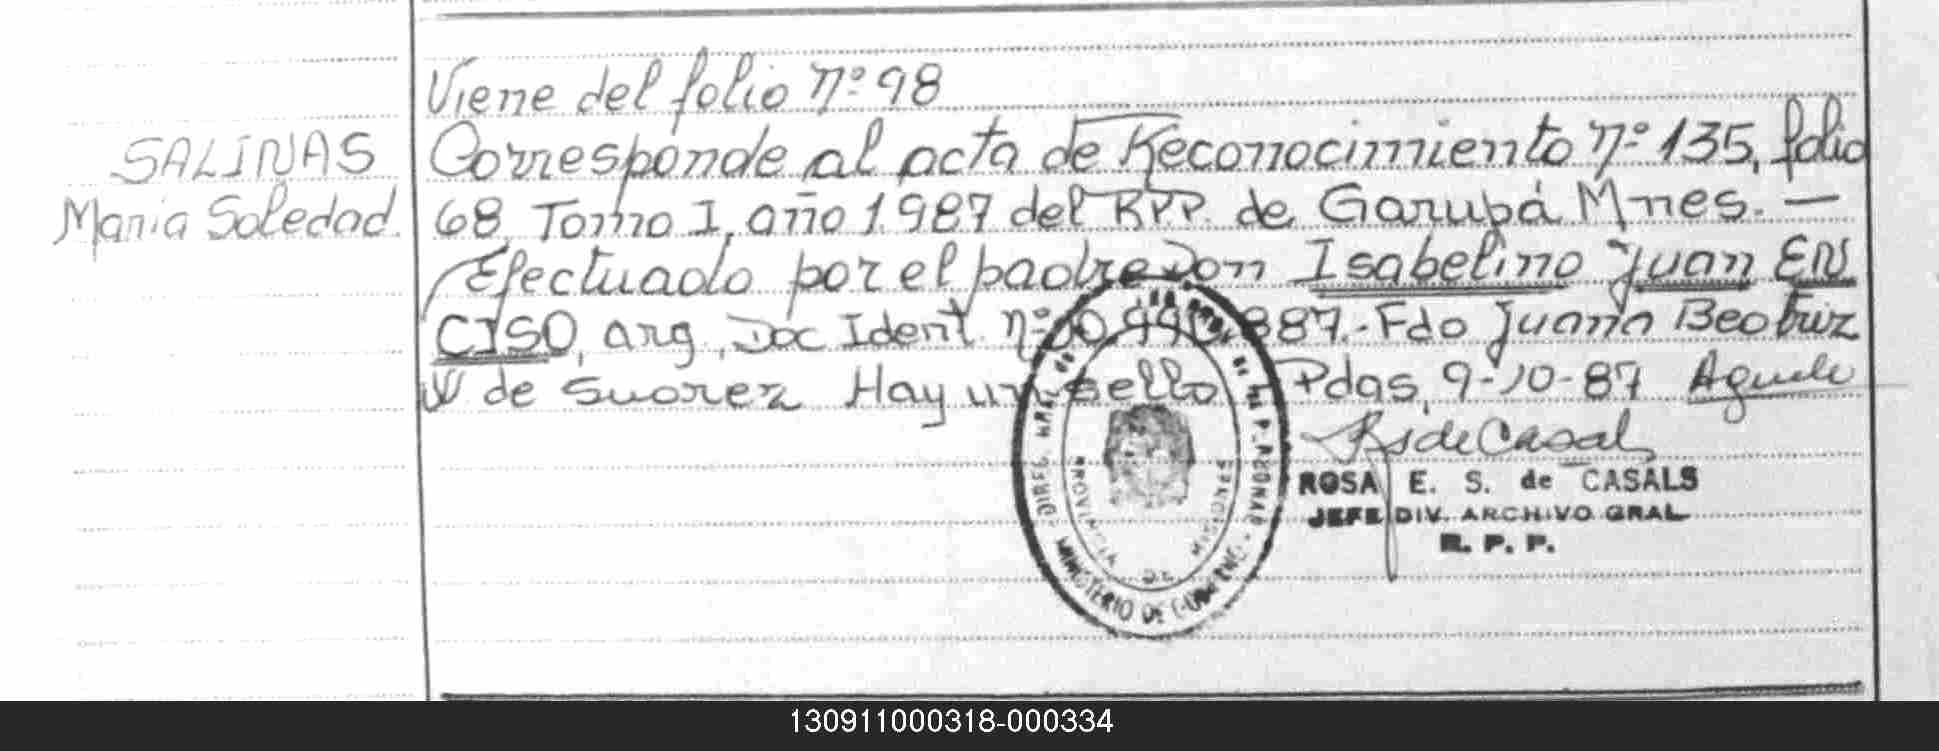 Viene del folio nº 98
SALINAS
María Soledad.
Corresponde al acta de Reconocimiento nº 135, folio
68 Tomo I, año 1987 del RPP. de Garupá Mnes. —
Efectuado por el padre Don Isabelino Juan EN
CISO, arg, Doc Ident. nº 887.- Fdo Juana Beatriz
de Suarez Hay un sello Pdas, 9-10-87
ROSA E. S. de CASALS
JEFE DIV. ARCHIVO GRAL
R. P. P.
PROVINCIA DE MISIONES
MINISTERIO DE GOBIERNO
130911000318-000334